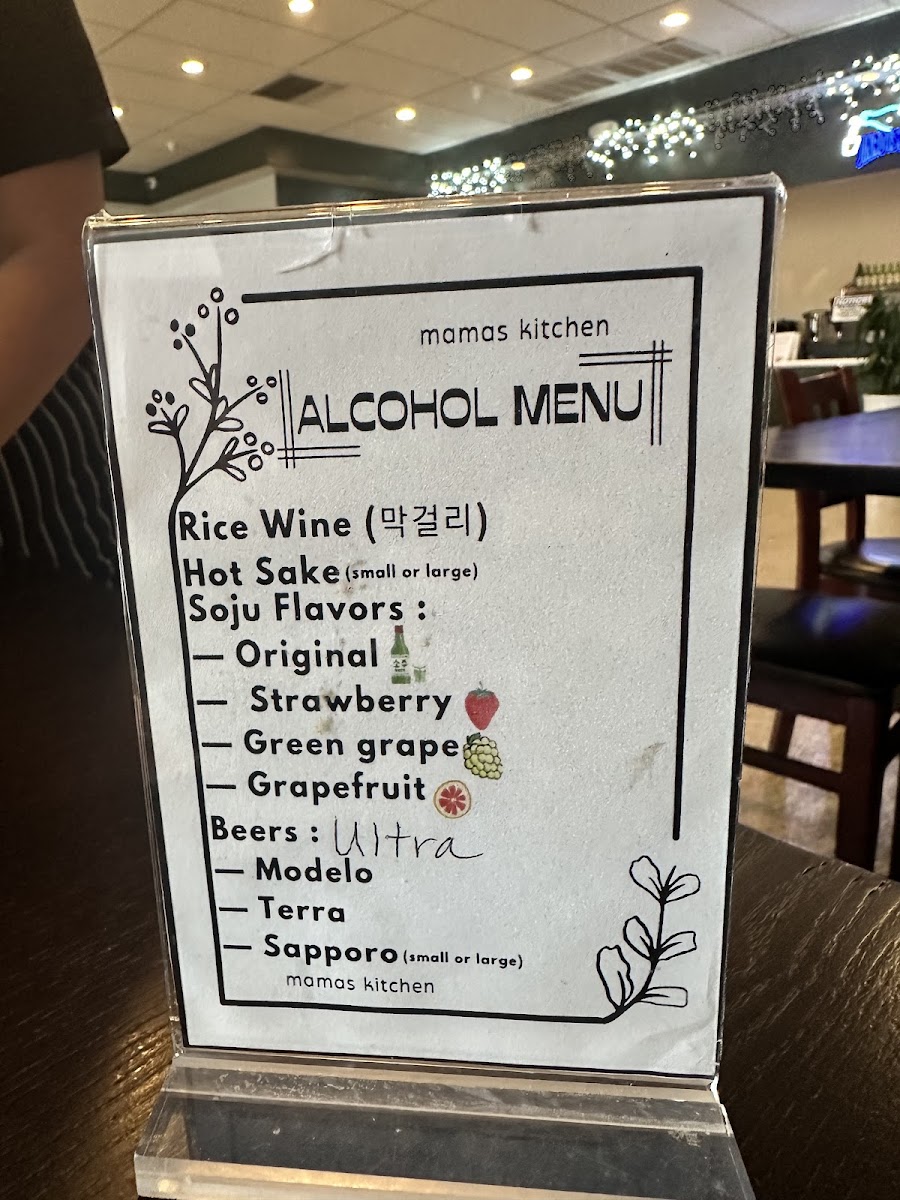 mamas kitchen
ALCOHOL MENU
Rice Wine (막걸리)
Hot Sake (small or large)
Soju Flavors :
— Original
— Strawberry
— Green grape
— Grapefruit
Beers : Ultra
— Modelo
— Terra
— Sapporo (small or large)
mamas kitchen